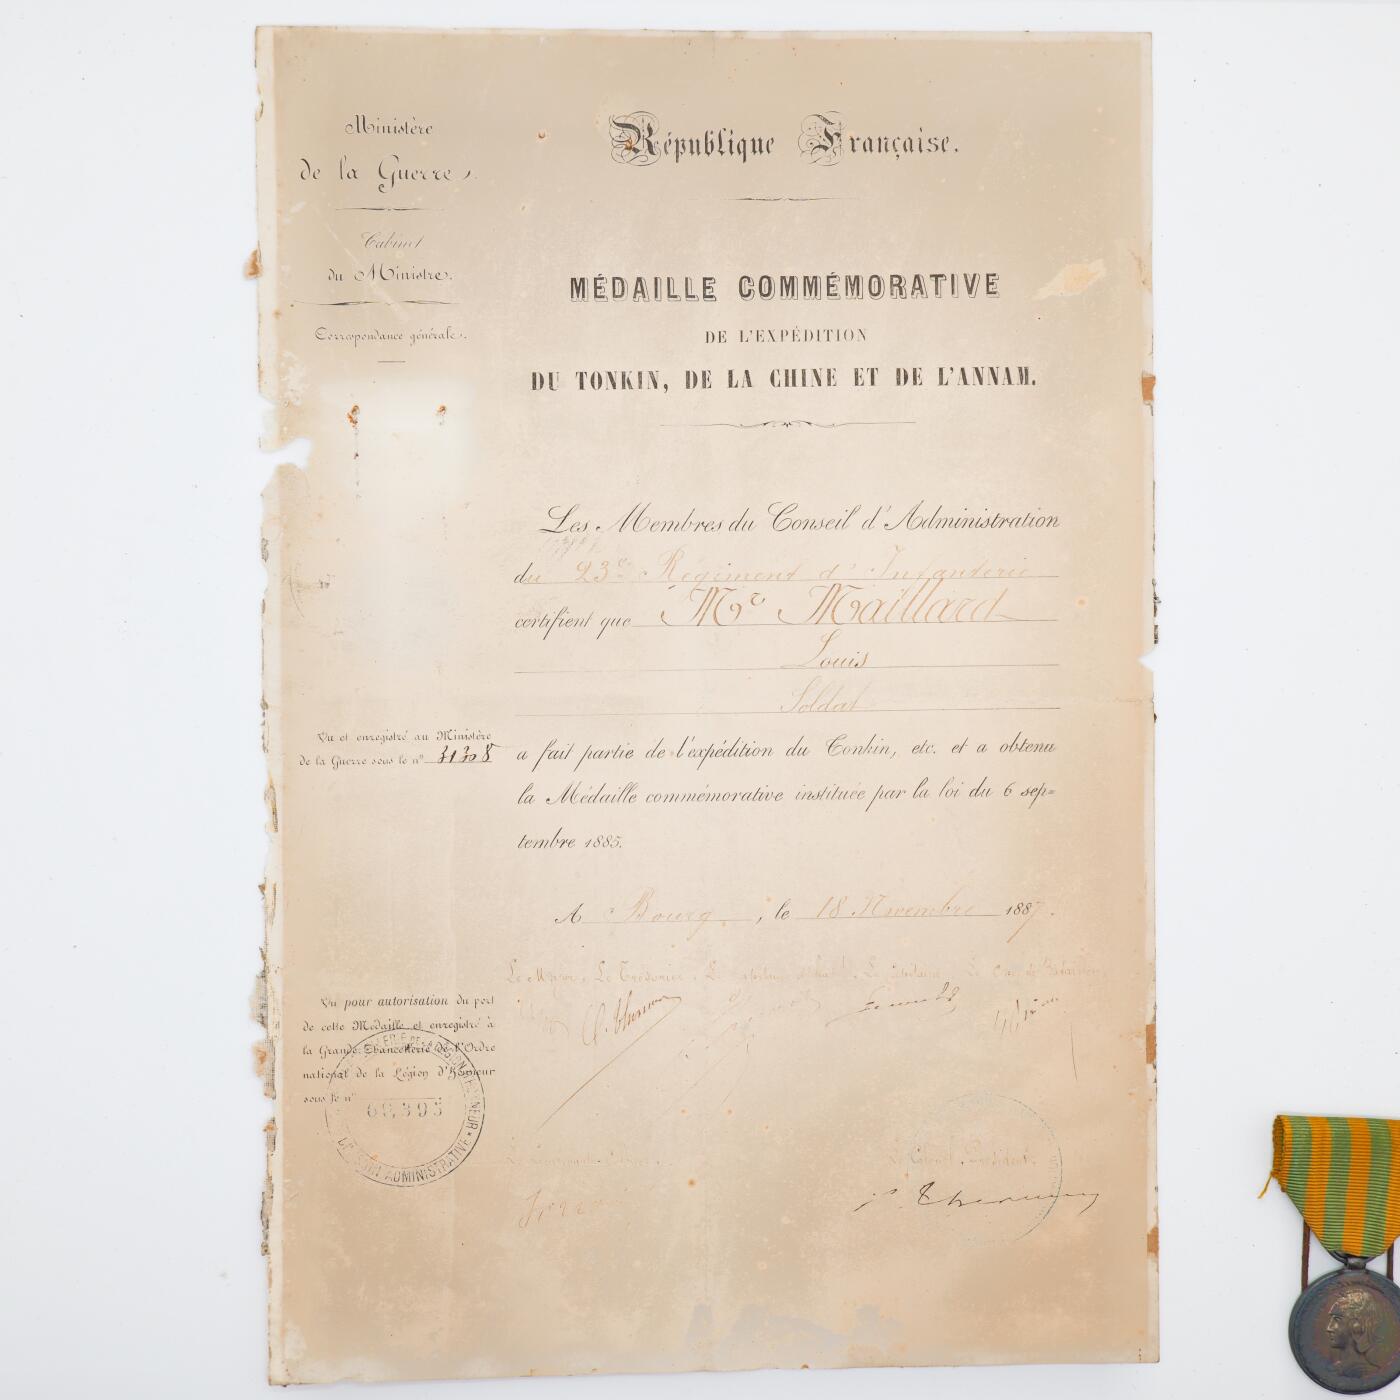 Ministère
de la Guerre.
Cabinet
du Ministre.
Correspondance générale.
République Française.
MÉDAILLE COMMÉMORATIVE
DE L'EXPÉDITION
DU TONKIN, DE LA CHINE ET DE L'ANNAM.
Les Membres du Conseil d'Administration
du 23e Régiment d'Infanterie
certifient que Mr Maillard
Louis
Soldat
Vu et enregistré au Ministère
de la Guerre sous le n° 31308
a fait partie de l'expédition du Tonkin, etc. et a obtenu
la Médaille commémorative instituée par la loi du 6 sep=
tembre 1885.
A Bourg, le 18 Novembre 1887.
Le Major. Le Trésorier. Le Capitaine
Vu pour autorisation du port
de cette Médaille et enregistré à
la Grande Chancellerie de l'Ordre
national de la Légion d'Honneur
sous le n°
DIVISION ADMINISTRATIVE
Le Colonel. Président.